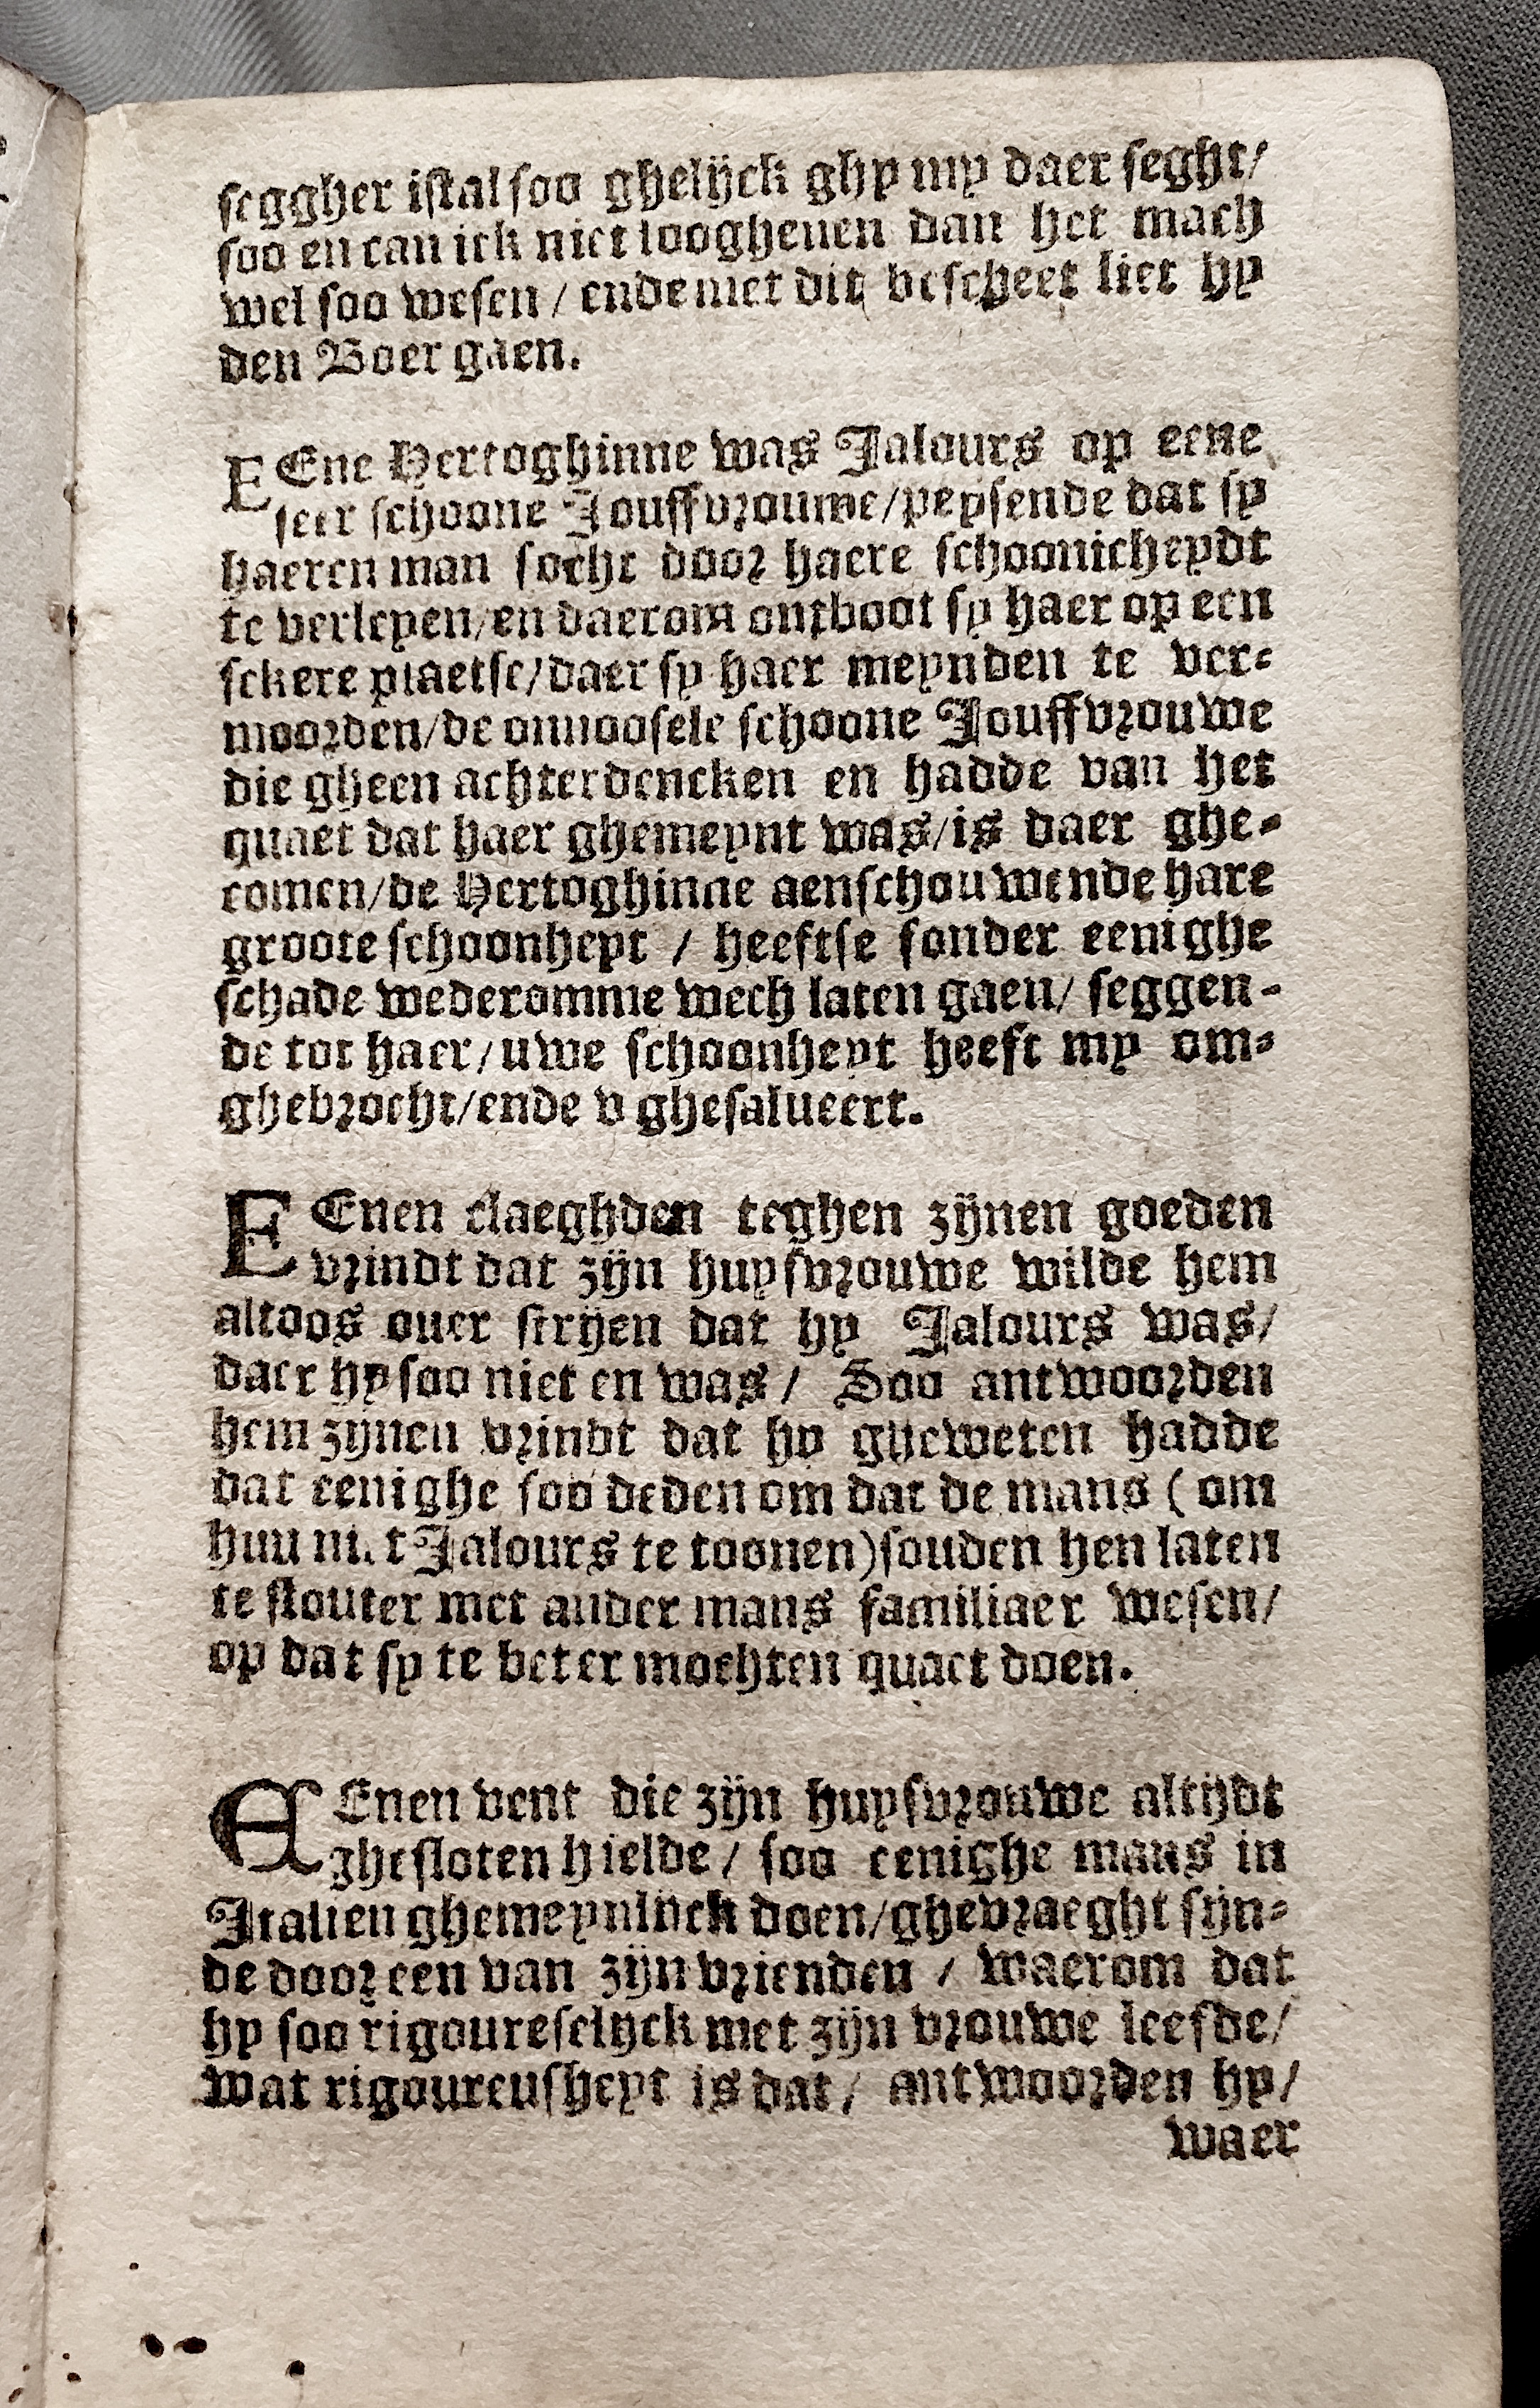 segger istalsoo ghelijck ghy my daer seght/
soo en can ick niet looghenen dan het mach
wel soo wesen / ende met dit bescheet liet hy
den Boer gaen.
EEne Hertoghinne was Jalours op eene
seer schoone Jouffvrouwe/peysende dat sy
haeren man socht door haere schoonicheydt
te verleyen/en daerom ontboot sy haer op een
sekere plaetse/daer sy haer meynden te ver-
moorden/de onnoosele schoone Jouffvrouwe
die gheen achterdencken en hadde van het
quaet dat haer ghemeynt was/is daer ghe-
comen/de Hertoghinne aenschouwende hare
groote schoonheyt / heeftse sonder eenighe
schade wederomme wech laten gaen/ seggen-
de tot haer/uwe schoonheyt heeft my om-
ghebrocht/ende v ghesalueert.
EEnen claeghden teghen zijnen goeden
vrindt dat zijn huysvrouwe wilde hem
altoos ouer strijen dat hy Jalours was/
daer hy soo niet en was / Soo antwoorden
hem zijnen vrindt dat hy gheweten hadde
dat eenighe soo deden om dat de mans ( om
hun niet Jalours te toonen)souden hen laten
te stouter met ander mans familiaer wesen/
op dat sy te beter mochten quaet doen.
EEnen vent die zijn huysvrouwe altijdt
ghesloten hielde / soo eenighe mans in
Italien ghemeynlijck doen/ghevraeght sijn-
de door een van zijn vrienden / waerom dat
hy soo rigoureselijck met zijn vrouwe leefde/
wat rigoureusheyt is dat / antwoorden hy/
waer